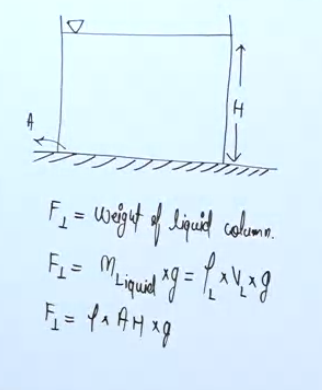 H
A
F⊥ = Weight of liquid column.
F⊥ = m_Liquid × g = ρ_L × V_L × g
F⊥ = ρ × A H × g